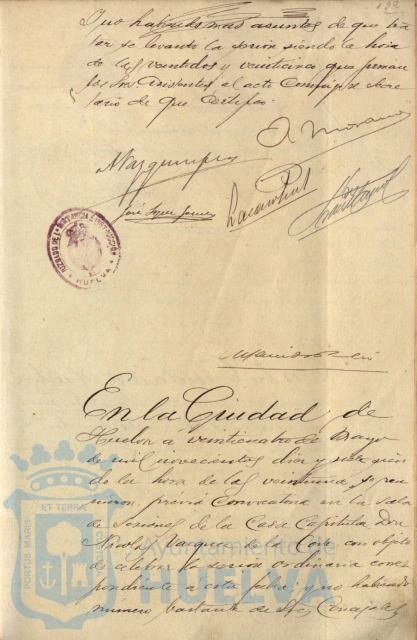 Y no habiendo mas asuntos de que tra-
tar se levantó la sesion siendo la hora
de las veintidos y veinticinco que firman
los Sres Asistentes al acto conmigo el Secre-
tario de que certifico.
A Moreno
A Vazquez
José Lopez Gomez
JUZGADO DE 1ª INSTANCIA E INSTRUCCIÓN
HUELVA
En la Ciudad de
Huelva a veinticuatro de Mayo
de mil novecientos diez y siete siendo
la hora de las veintiuna se reu-
nieron previa convocatoria en la Sala
de Sesiones de la Casa Capitular Don
Nicolas Vazquez de la Corte con objeto
de celebrar la sesion ordinaria corres-
pondiente a esta fecha; y no habiendo
numero bastante de Sres Concejales
PORTUS MARIS
ET TERRAE
Ayuntamiento de
HUELVA